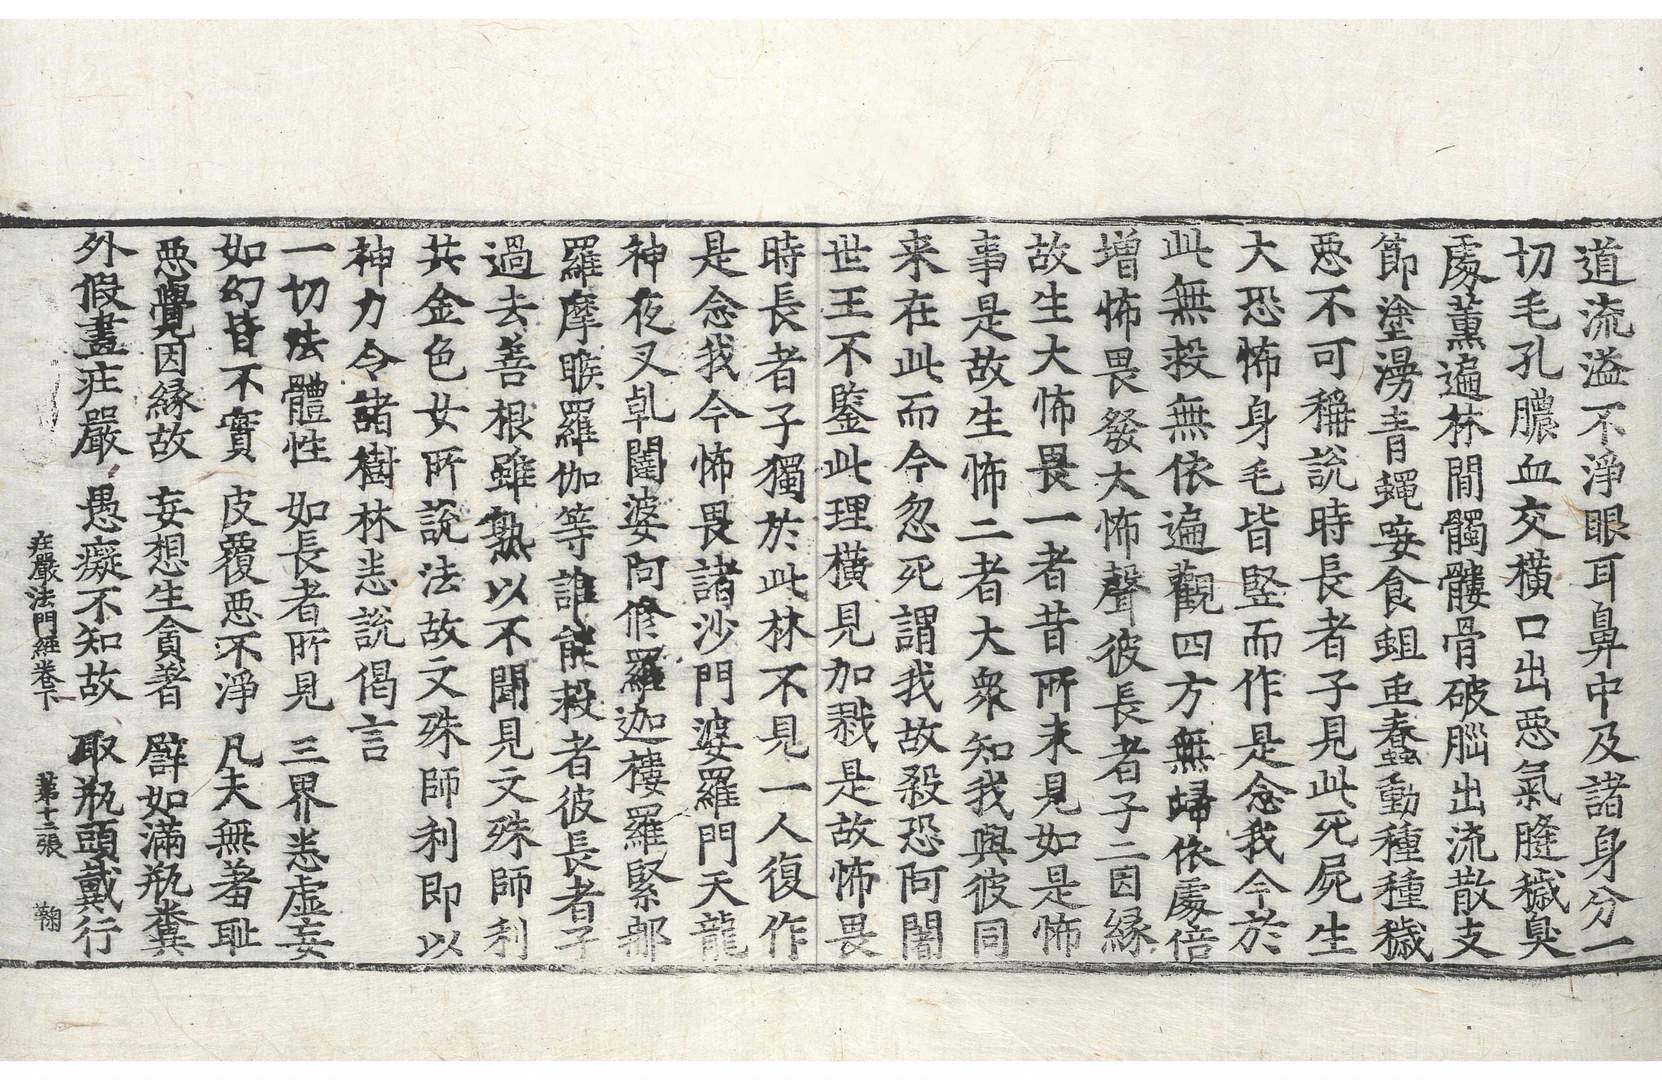 道流溢不淨眼耳鼻中及諸身分一
切毛孔膿血交橫口出惡氣膖穢臭
處薰遍林間髑髏骨破腦出流散支
節塗漫青蠅唼食蛆虫蠢動種種穢
惡不可稱說時長者子見此死屍生
大恐怖身毛皆竪而作是念我今於
此無救無依遍觀四方無歸依處倍
增怖畏發大怖聲彼長者子二因緣
故生大怖畏一者昔所未見如是怖
事是故生怖二者大衆知我與彼同
来在此而今忽死謂我故殺恐阿闍
世王不鑒此理橫見加戮是故怖畏
時長者子獨於此林不見一人復作
是念我今怖畏諸沙門婆羅門天龍
神夜叉乹闥婆阿修羅迦樓羅緊那
羅摩睺羅伽等誰能救者彼長者子
過去善根雖熟以不聞見文殊師利
共金色女所說法故文殊師利即以
神力令諸樹林悉說偈言
一切法體性　如長者所見　三界悉虛妄
如幻皆不實　皮覆惡不淨　凡夫無羞恥
惡覺因緣故　妄想生貪著　譬如滿瓶糞
外假畫莊嚴　愚癡不知故　取瓶頭戴行
莊嚴法門經卷下　第十二張　鞠